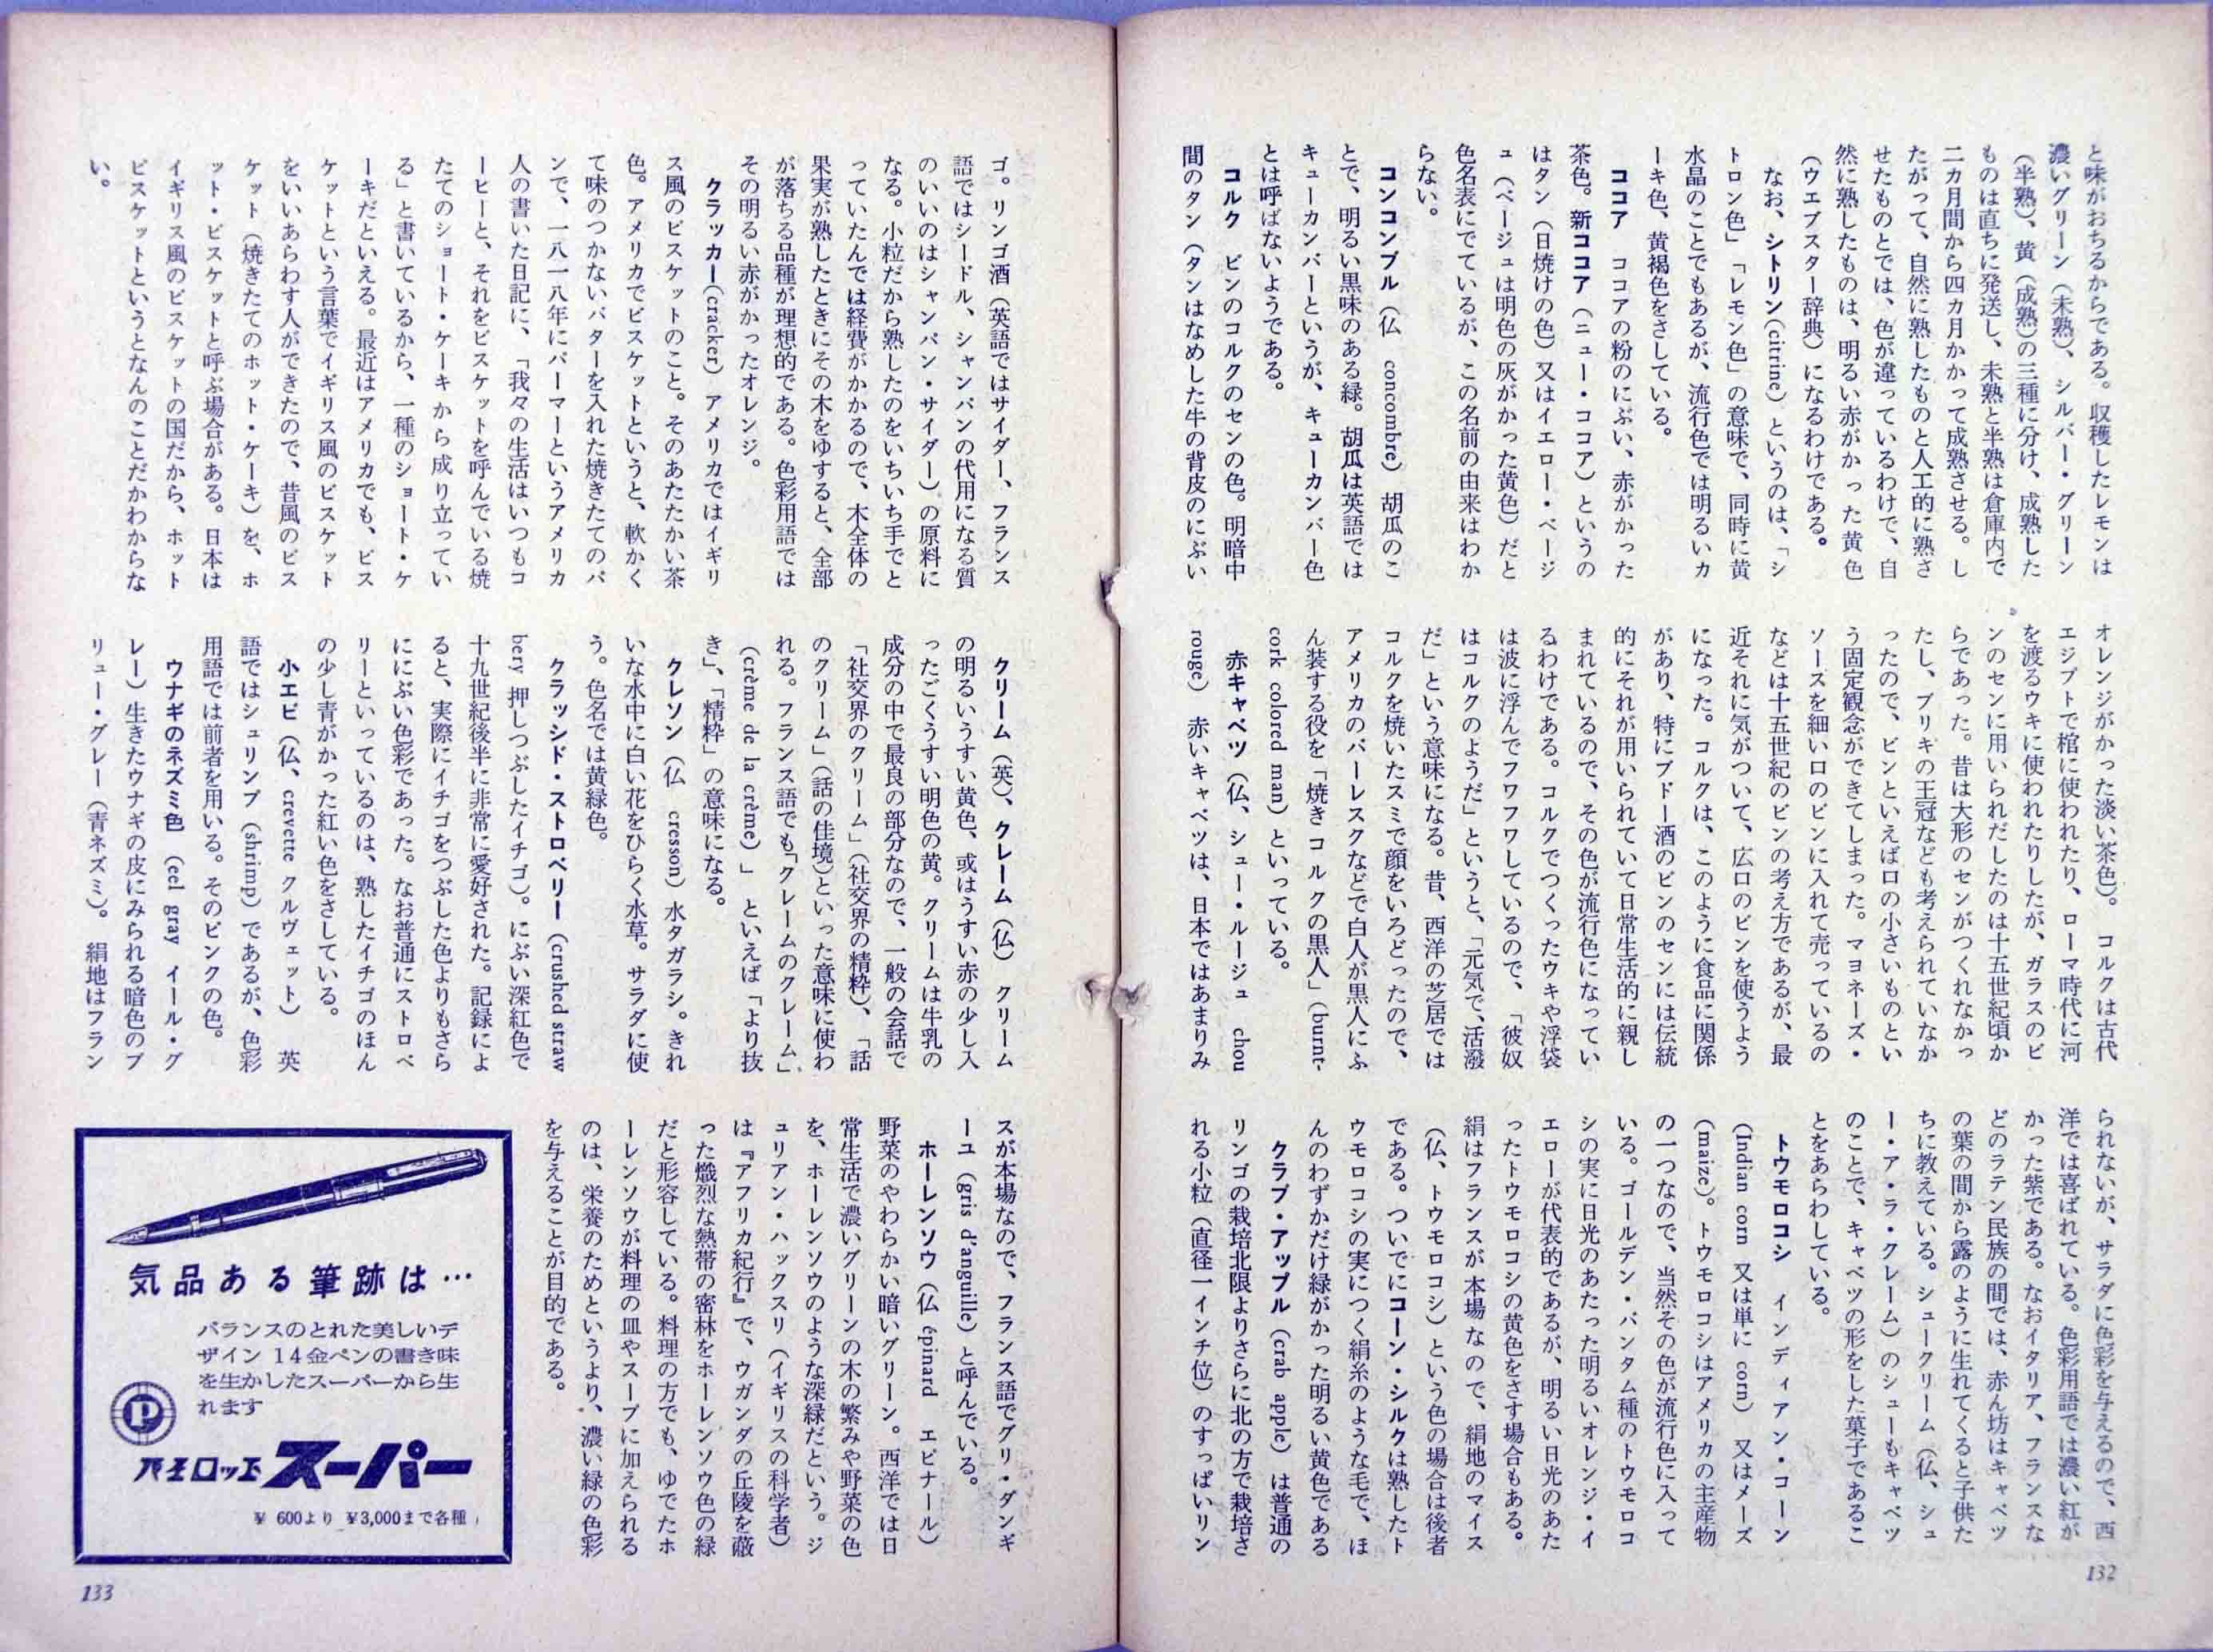 と味がおちるからである。収穫したレモンは
濃いグリーン（未熟）、シルバー・グリーン
（半熟）、黄（成熟）の三種に分け、成熟した
ものは直ちに発送し、未熟と半熟は倉庫内で
二カ月間から四カ月かかって成熟させる。し
たがって、自然に熟したものと人工的に熟さ
せたものとでは、色が違っているわけで、自
然に熟したものは、明るい赤がかった黄色
（ウエブスター辞典）になるわけである。
なお、シトリン(citrine）というのは、「シ
トロン色」「レモン色」の意味で、同時に黄
水晶のことでもあるが、流行色では明るいカ
ーキ色、黄褐色をさしている。
ココア　ココアの粉のにぶい、赤がかった
茶色。新ココア（ニュー・ココア）というの
はタン（日焼けの色）又はイエロー・ベージ
ュ（ベージュは明色の灰がかった黄色）だと
色名表にでているが、この名前の由来はわか
らない。
コンコンブル（仏　concombre）胡瓜のこ
とで、明るい黒味のある緑。胡瓜は英語では
キューカンバーというが、キューカンバー色
とは呼ばないようである。
コルク　ビンのコルクのセンの色。明暗中
間のタン（タンはなめした牛の背皮のにぶい
オレンジがかった淡い茶色）。コルクは古代
エジプトで棺に使われたり、ローマ時代に河
を渡るウキに使われたりしたが、ガラスのビ
ンのセンに用いられだしたのは十五世紀頃か
らであった。昔は大形のセンがつくれなかっ
たし、ブリキの王冠なども考えられていなか
ったので、ビンといえば口の小さいものとい
う固定観念ができてしまった。マヨネーズ・
ソースを細い口のビンに入れて売っているの
などは十五世紀のビンの考え方であるが、最
近それに気がついて、広口のビンを使うよう
になった。コルクは、このように食品に関係
があり、特にブドー酒のビンのセンには伝統
的にそれが用いられていて日常生活的に親し
まれているので、その色が流行色になってい
るわけである。コルクでつくったウキや浮袋
は波に浮んでフワフワしているので、「彼奴
はコルクのようだ」というと、「元気で、活潑
だ」という意味になる。昔、西洋の芝居では
コルクを焼いたスミで顔をいろどったので、
アメリカのバーレスクなどで白人が黒人にふ
ん装する役を「焼きコルクの黒人」（burnt-
cork colored man）といっている。
赤キャベツ（仏、シュー・ルージュ　chou
rouge）赤いキャベツは、日本ではあまりみ
られないが、サラダに色彩を与えるので、西
洋では喜ばれている。色彩用語では濃い紅が
かった紫である。なおイタリア、フランスな
どのラテン民族の間では、赤ん坊はキャベツ
の葉の間から露のように生れてくると子供た
ちに教えている。シュークリーム（仏、シュ
ー・ア・ラ・クレーム）のシューもキャベツ
のことで、キャベツの形をした菓子であるこ
とをあらわしている。
トウモロコシ　インディアン・コーン
(Indian corn 又は単に corn）又はメーズ
(maize)。トウモロコシはアメリカの主産物
の一つなので、当然その色が流行色に入って
いる。ゴールデン・バンタム種のトウモロコ
シの実に日光のあたった明るいオレンジ・イ
エローが代表的であるが、明るい日光のあた
ったトウモロコシの黄色をさす場合もある。
絹はフランスが本場なので、絹地のマイス
（仏、トウモロコシ）という色の場合は後者
である。ついでにコーン・シルクは熟したト
ウモロコシの実につく絹糸のような毛で、ほ
んのわずかだけ緑がかった明るい黄色である
クラブ・アップル（crab apple）は普通の
リンゴの栽培北限よりさらに北の方で栽培さ
れる小粒（直径一インチ位）のすっぱいリン
132
ゴ。リンゴ酒（英語ではサイダー、フランス
語ではシードル、シャンパンの代用になる質
のいいのはシャンパン・サイダー）の原料に
なる。小粒だから熟したのをいちいち手でと
っていたんでは経費がかかるので、木全体の
果実が熟したときにその木をゆすると、全部
が落ちる品種が理想的である。色彩用語では
その明るい赤がかったオレンジ。
クラッカー(cracker）アメリカではイギリ
ス風のビスケットのこと。そのあたたかい茶
色。アメリカでビスケットというと、軟かく
て味のつかないバターを入れた焼きたてのパ
ンで、一八一八年にパーマーというアメリカ
人の書いた日記に、「我々の生活はいつもコ
ーヒーと、それをビスケットを呼んでいる焼
たてのショート・ケーキから成り立ってい
る」と書いているから、一種のショート・ケ
ーキだといえる。最近はアメリカでも、ビス
ケットという言葉でイギリス風のビスケット
をいいあらわす人ができたので、昔風のビス
ケット（焼きたてのホット・ケーキ）を、ホ
ット・ビスケットと呼ぶ場合がある。日本は
イギリス風のビスケットの国だから、ホット
ビスケットというとなんのことだかわからな
い。
クリーム（英）、クレーム（仏）クリーム
の明るいうすい黄色、或はうすい赤の少し入
ったごくうすい明色の黄。クリームは牛乳の
成分の中で最良の部分なので、一般の会話で
「社交界のクリーム」（社交界の精粋）、「話
のクリーム」（話の佳境）といった意味に使わ
れる。フランス語でも「クレームのクレーム」
（crème de la crème）」といえば「より抜
き」、「精粋」の意味になる。
クレソン（仏　cresson）水タガラシ。きれ
いな水中に白い花をひらく水草。サラダに使
う。色名では黄緑色。
クラッシド・ストロベリー（crushed straw
bery 押しつぶしたイチゴ）。にぶい深紅色で
十九世紀後半に非常に愛好された。記録によ
ると、実際にイチゴをつぶした色よりもさら
ににぶい色彩であった。なお普通にストロベ
リーといっているのは、熟したイチゴのほん
の少し青がかった紅い色をさしている。
小エビ（仏、crevette クルヴェット）　英
語ではシュリンプ（shrimp）であるが、色彩
用語では前者を用いる。そのピンクの色。
ウナギのネズミ色　（eel gray　イール・グ
レー）生きたウナギの皮にみられる暗色のブ
リュー・グレー（青ネズミ）。絹地はフラン
スが本場なので、フランス語でグリ・ダンギ
ーユ（gris d'anguille）と呼んでいる。
ホーレンソウ（仏 épinard　エピナール）
野菜のやわらかい暗いグリーン。西洋では日
常生活で濃いグリーンの木の繁みや野菜の色
を、ホーレンソウのような深緑だという。ジ
ュリアン・ハックスリ（イギリスの科学者）
は『アフリカ紀行』で、ウガンダの丘陵を蔽
った熾烈な熱帯の密林をホーレンソウ色の緑
だと形容している。料理の方でも、ゆでたホ
ーレンソウが料理の皿やスープに加えられる
のは、栄養のためというより、濃い緑の色彩
を与えることが目的である。
気品ある筆跡は…
バランスのとれた美しいデ
ザイン 14金ペンの書き味
を生かしたスーパーから生
れます
P
パイロット スーパー
¥ 600より ¥3,000まで各種
133